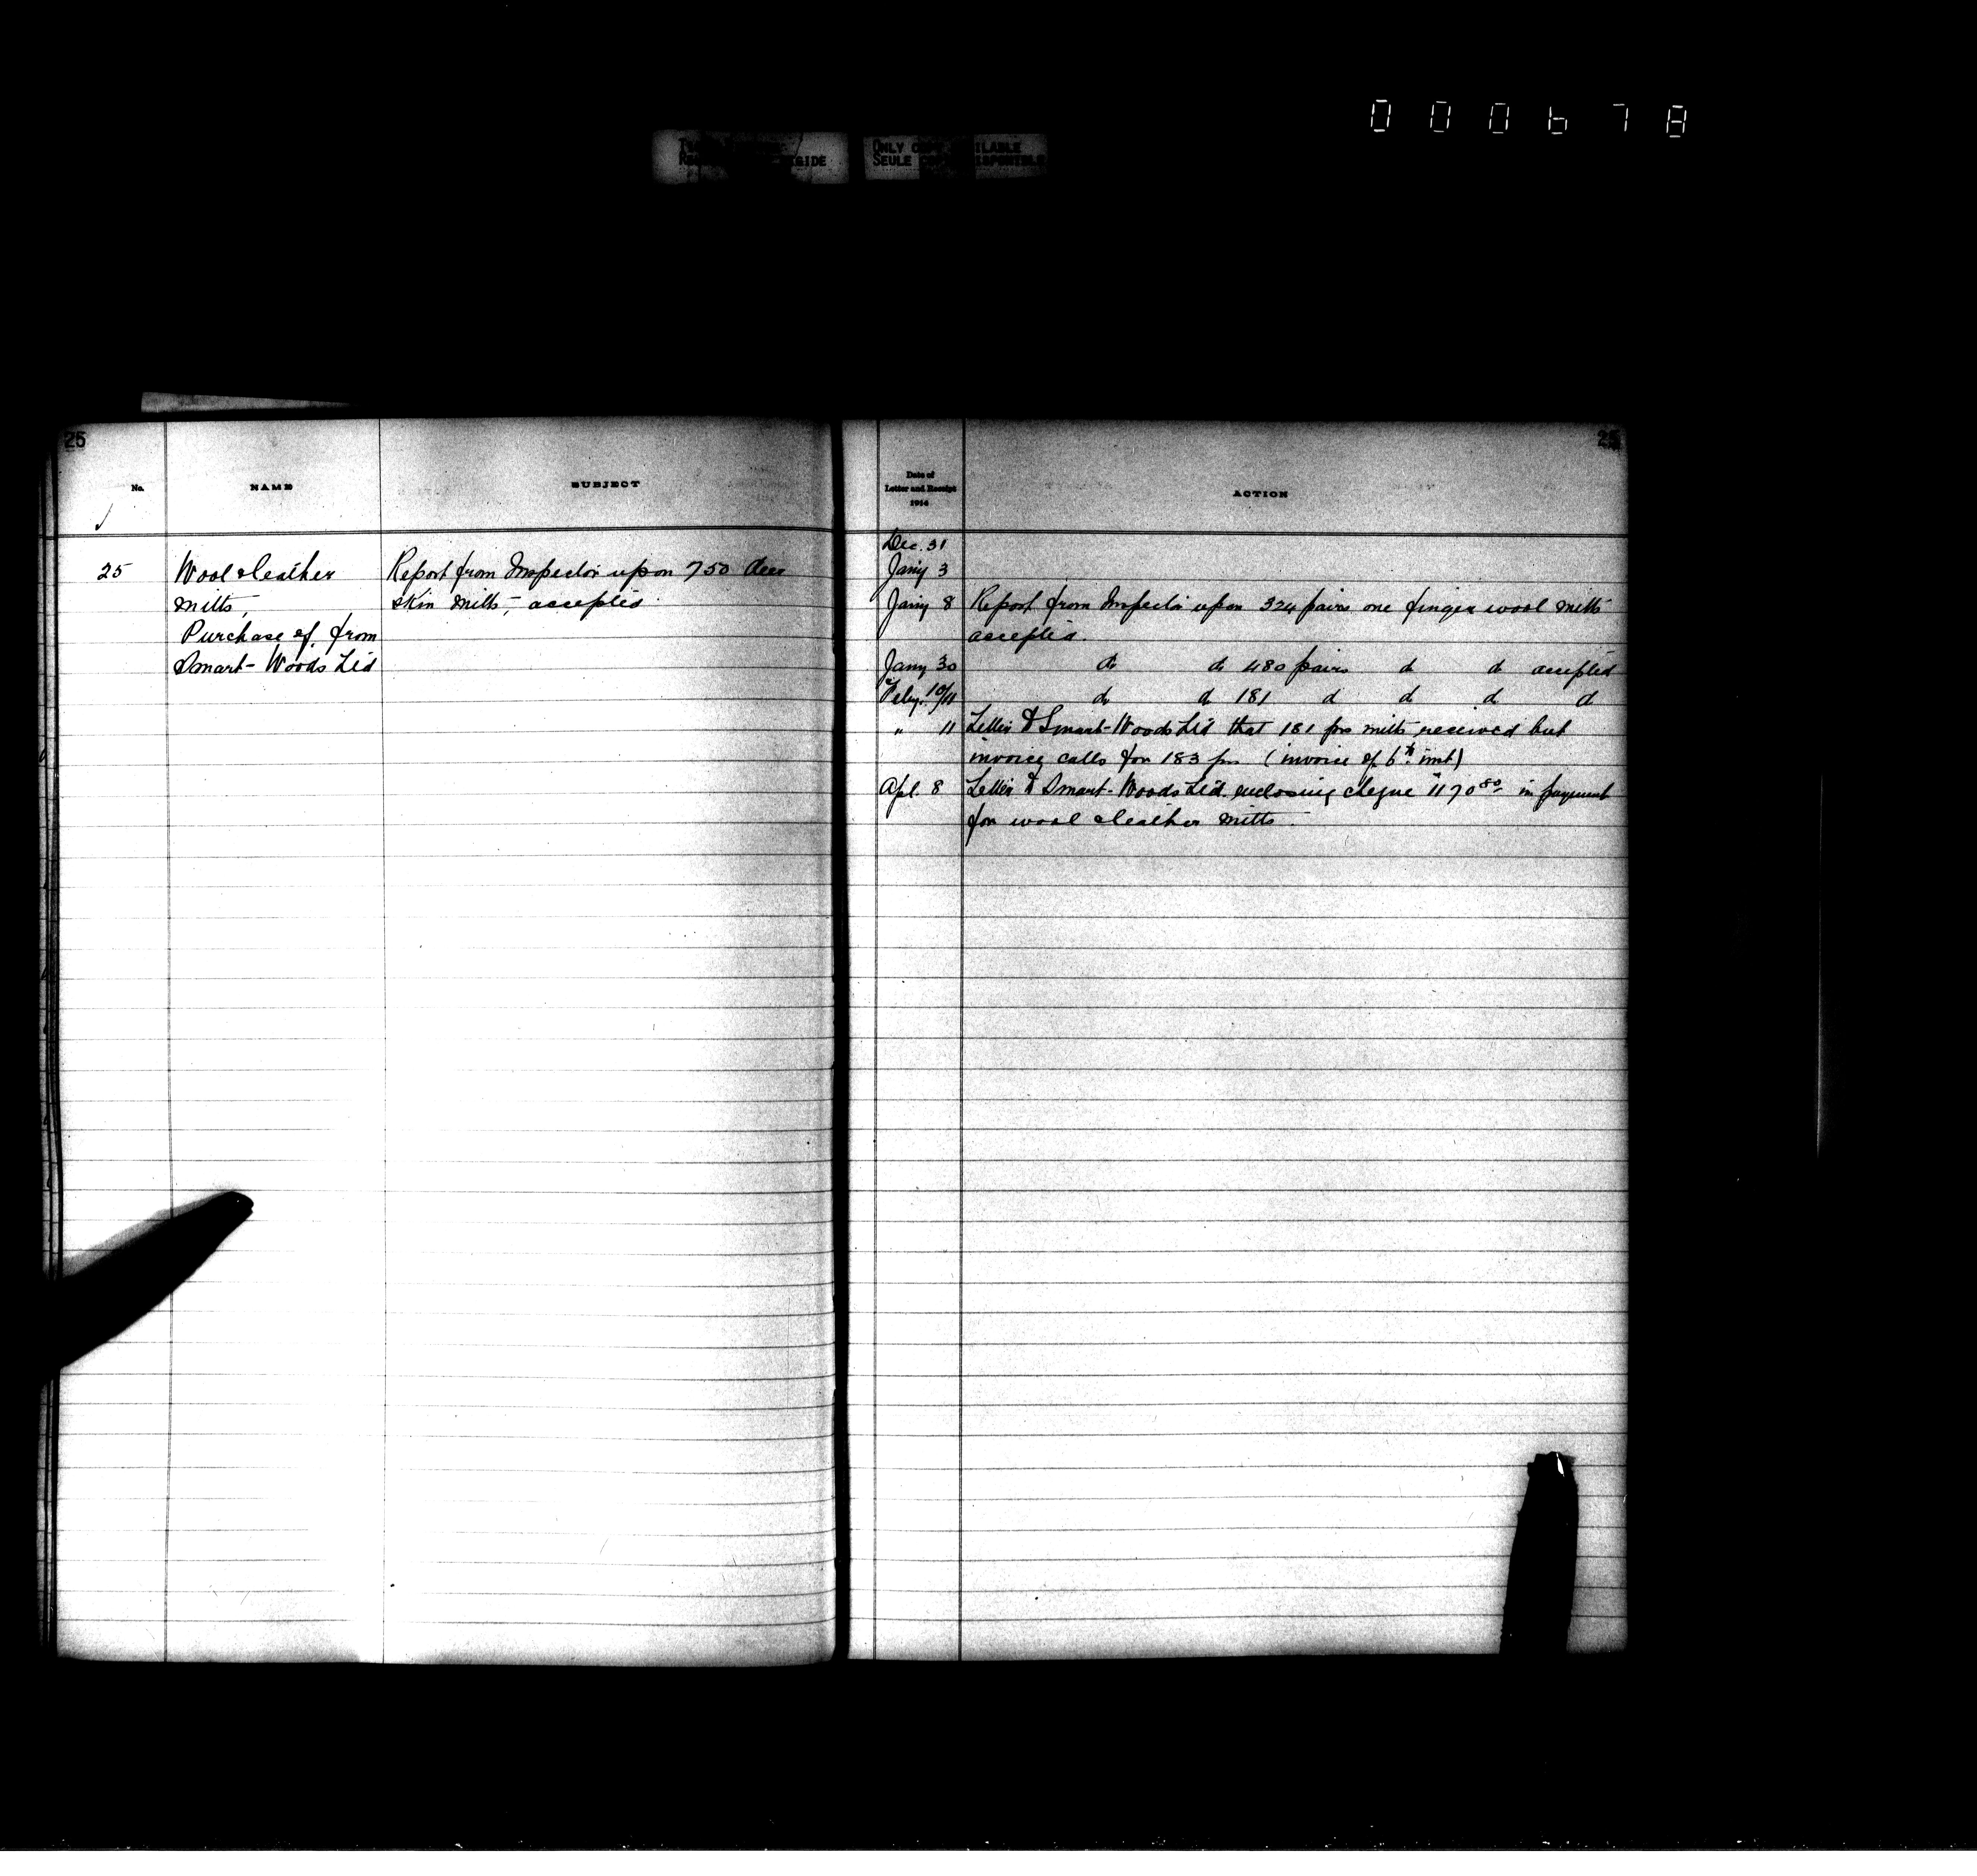 000678
ONLY COPY AVAILABLE
SEULE COPIE DISPONIBLE
25
25
No.
NAME
SUBJECT
Date of
Letter and Receipt
1914
ACTION
Dec. 31
25 Wool & leather Report from Inspector upon 750 deer Jany 3
mitts, skin mitts, accepted. Jany 8 Report from Inspector upon 324 pairs one finger wool mitts
Purchase of, from accepted.
Smart-Woods Ltd Jany 30 do do 480 pairs do do accepted
Feby. 10/11 do do 181 do do do do
" 11 Letter to Smart-Woods Ltd that 181 prs mitts received but
invoice calls for 183 prs (invoice of 6th inst)
Apl. 8 Letter to Smart-Woods Ltd. enclosing cheque 1170.80 in payment
for wool & leather mitts.